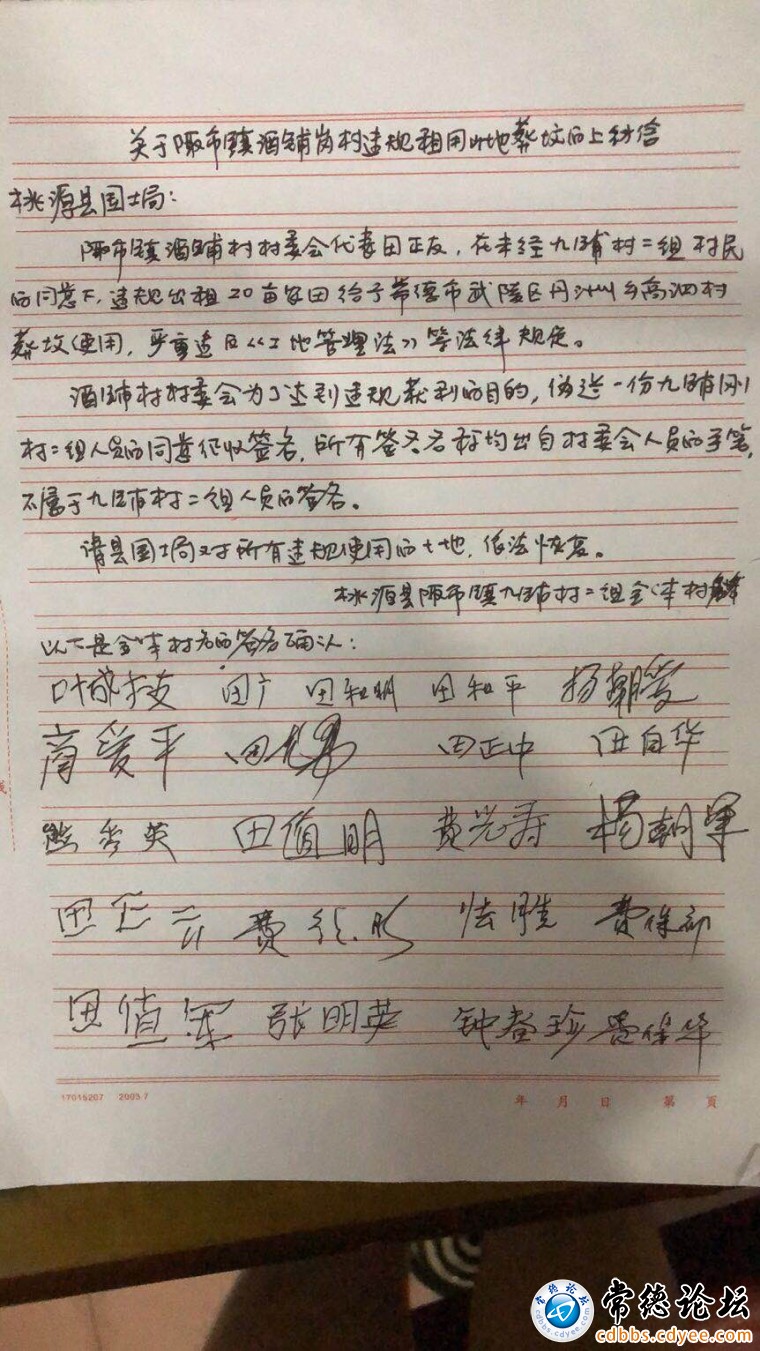 关于陬市镇酒铺岗村违规租用山地葬坟的上访信
桃源县国土局:
陬市镇酒铺村村委会代表田正友,在未经九铺村二组村民
的同意下,违规出租20亩农田给予常德市武陵区丹洲乡高泗村
葬坟使用,严重违反《土地管理法》等法律规定。
酒铺村村委会为了达到违规获利的目的,伪造一份九铺岗
村二组人员的同意征收签名,所有签名名称均出自村委会人员的手笔,
不属于九铺村二组人员的签名。
请县国土局对于所有违规使用的土地,依法恢复。
桃源县陬市镇九铺村二组全体村
以下是全体村名的签名确认:
田广 田和明 田和平 杨朝爱
高爱平 田正中 田自华
熊秀英 田值明 费光寿 杨朝军
田正云 费 费保
田值军 张明英 钟春珍 费保华
17015207 2005.7 年 月 日 第 页
常德论坛
cdbbs.cdyee.com